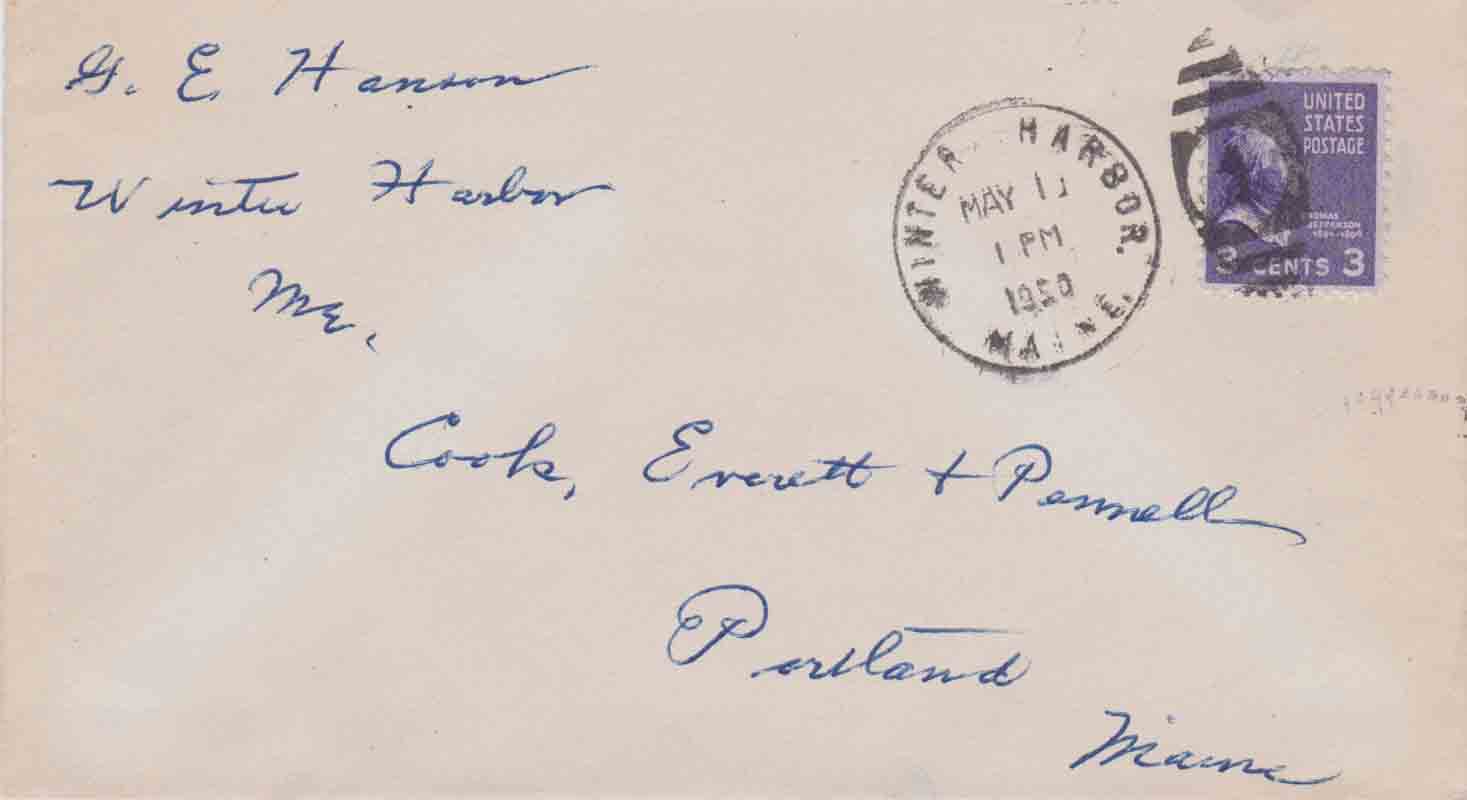 G. E. Hanson
Winter Harbor
Me.
WINTER HARBOR.
MAY
1 PM
1950
MAINE
UNITED
STATES
POSTAGE
THOMAS
JEFFERSON
3 CENTS 3
Cook, Everett + Pennell
Portland
Maine